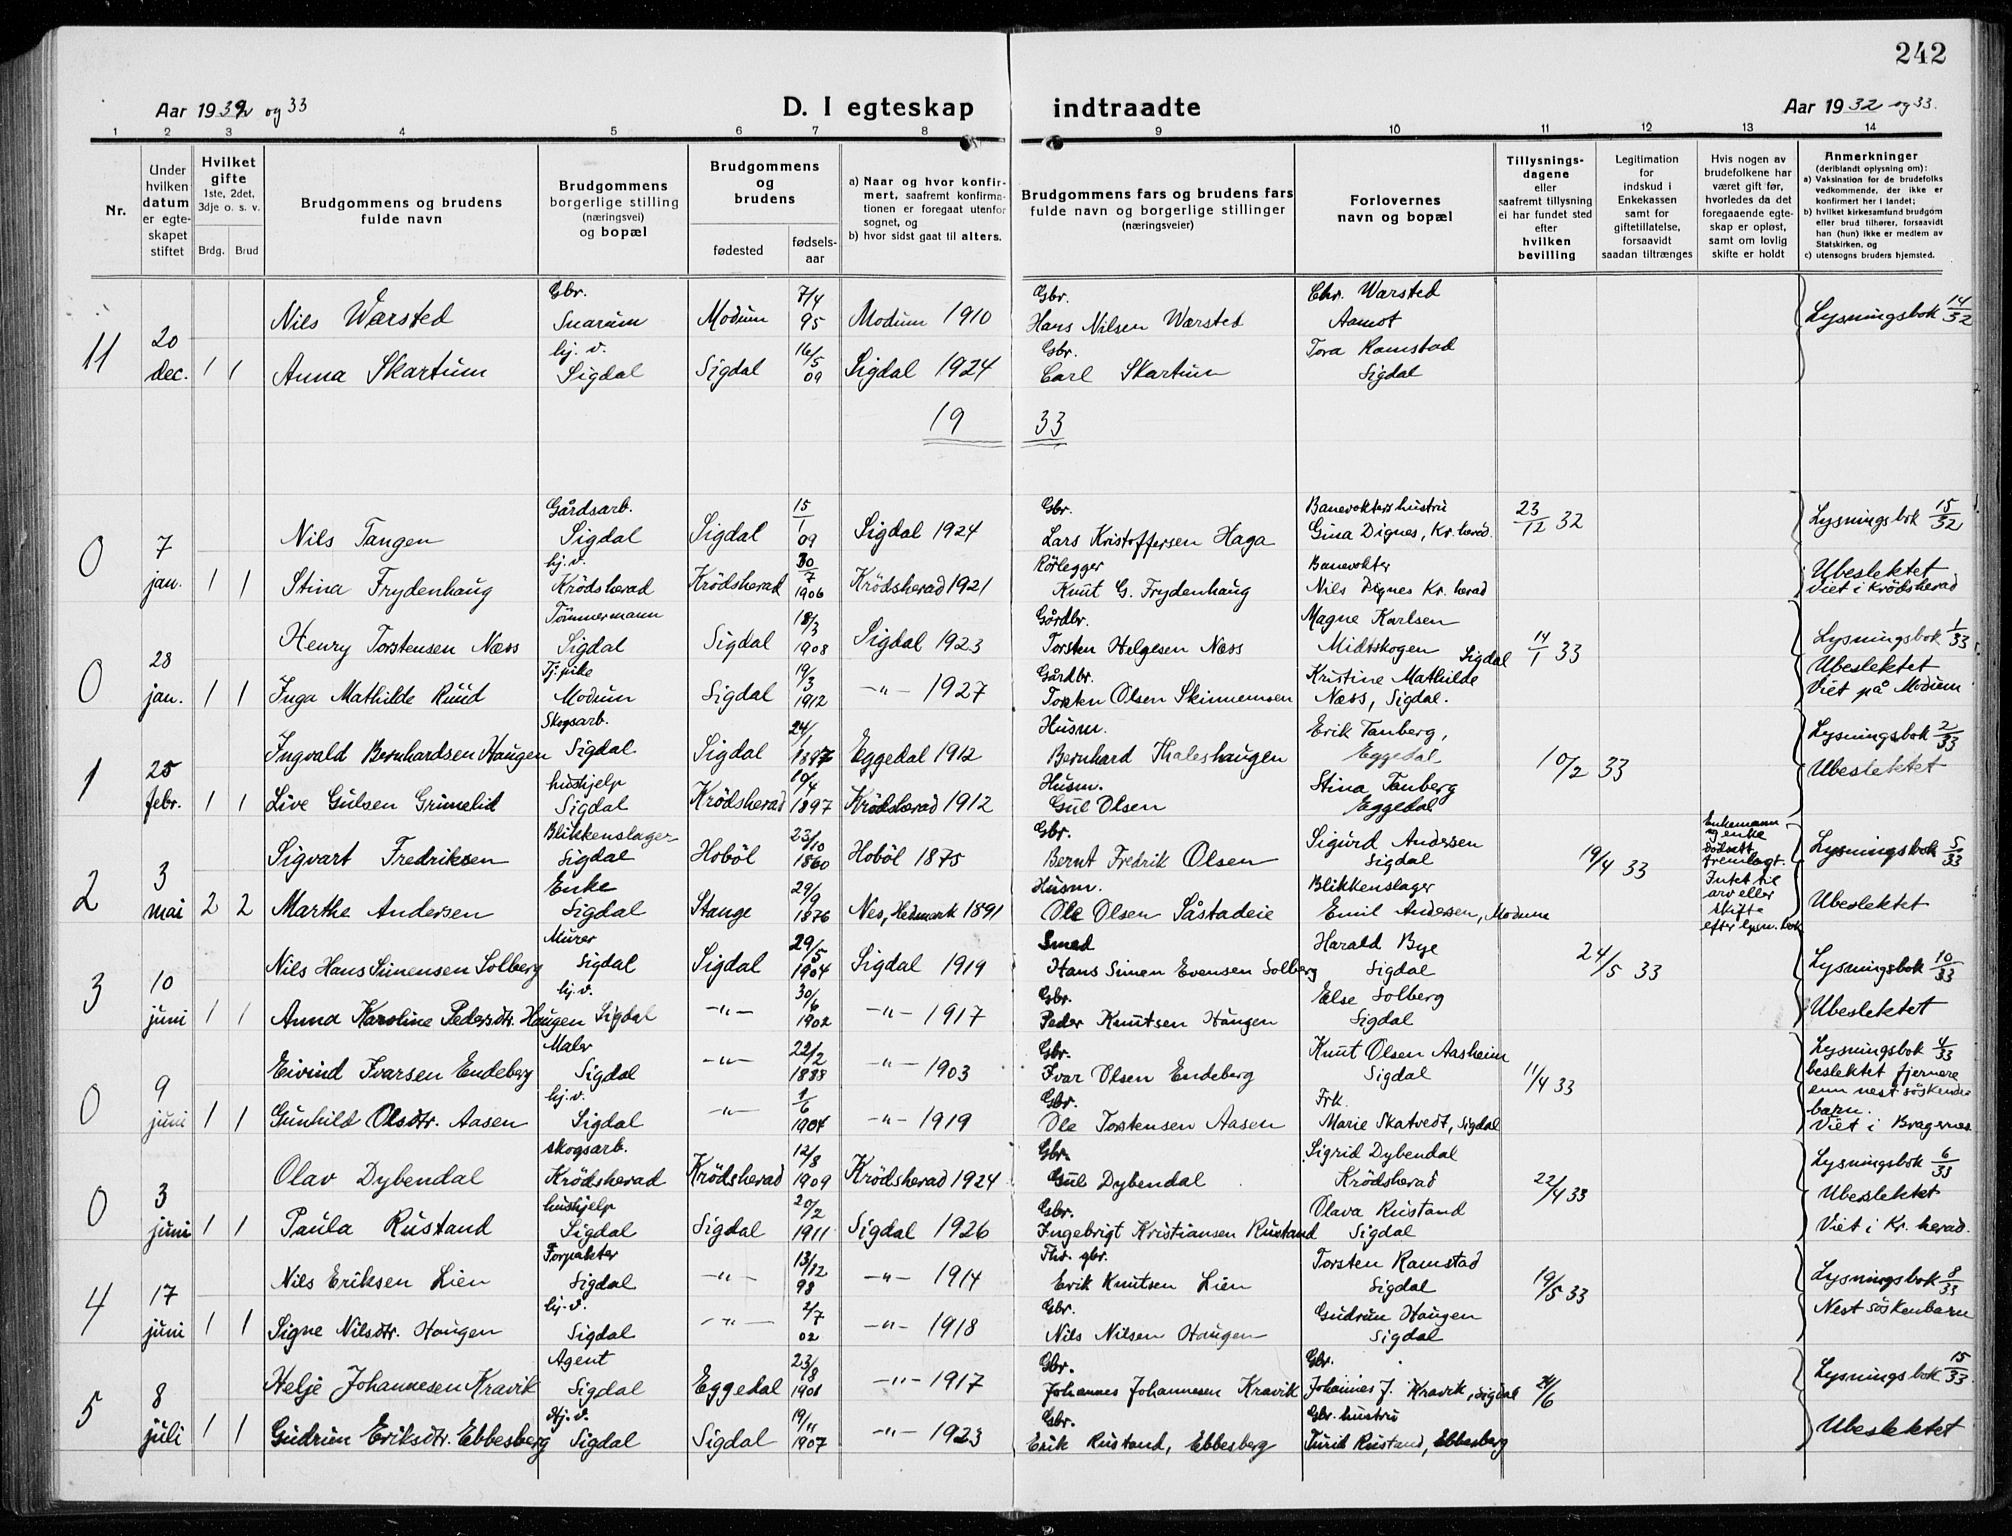 242
Aar 1932 og 33
D. I egteskap indtraadte
Aar 1932 og 33.
1 2 3 4 5 6 7 8 9 10 11 12 13 14
Nr.
Under hvilken datum er egteskapet stiftet
Hvilket gifte
1ste, 2det, 3dje o. s. v.
Brdg. Brud
Brudgommens og brudens fulde navn
Brudgommens borgerlige stilling (næringsvei) og bopæl
Brudgommens og brudens
fødested
fødsels-aar
a) Naar og hvor konfirmert, saafremt konfirmationen er foregaat utenfor sognet, og
b) hvor sidst gaat til alters.
Brudgommens fars og brudens fars fulde navn og borgerlige stillinger (næringsveier)
Forlovernes navn og bopæl
Tillysningsdagene eller saafremt tillysning ei har fundet sted efter hvilken bevilling
Legitimation for indskud i Enkekassen samt for giftetillatelse, forsaavidt saadan tiltrænges
Hvis nogen av brudefolkene har været gift før, hvorledes da det foregaaende egteskap er opløst, samt om lovlig skifte er holdt
Anmerkninger
(deriblandt oplysning om):
a) Vaksination for de brudefolks vedkommende, der ikke er konfirmert her i landet;
b) hvilket kirkesamfund brudgom eller brud tilhører, forsaavidt han (hun) ikke er medlem av Statskirken, og
c) utensogns bruders hjemsted.
11 20 dec. 1 1
Nils Warsted Gbr. Snarum Modum 7/4 95 Modum 1910 Gbr. Hans Nilsen Warsted Chr. Warsted Aamot Lysningsbok 14/32
Anna Skartum hj. v. Sigdal Sigdal 16/5 09 Sigdal 1924 Gbr. Carl Skartum Tora Ramstad Sigdal
19 33
0 7 jan. 1 1
Nils Tangen Gårdsarb. Sigdal Sigdal 15/1 09 Sigdal 1924 Gbr. Lars Kristoffersen Haga Banevokters hustru Gina Dignes, Kr. herad 23/12 32 Lysningsbok 15/32
Stina Frydenhaug hj. v. Krödsherad Krödsherad 30/7 1906 Krödsherad 1921 Rörlegger Knut G. Frydenhaug Banevokter Nils Dignes Kr. herad Ubeslektet Viet i Krödsherad
0 28 jan. 1 1
Henry Torstensen Næss Tömmermann Sigdal Sigdal 18/3 1908 Sigdal 1923 Gårdbr. Torsten Helgesen Næss Magne Karlsen Midtskogen Sigdal 14/1 33 Lysningsbok 1/33
Inga Mathilde Ruud Tj. pike Modum Sigdal 19/3 1912 -"- 1927 Gårdbr. Torsten Olsen Skinnemoen Kristine Mathilde Næss, Sigdal. Ubeslektet Viet på Modum
1 25 febr. 1 1
Ingvald Bernhardsen Haugen Skogsarb. Sigdal Sigdal 24/1 1897 Eggedal 1912 Husm. Bernhard Thaleshaugen Erik Tanberg, Eggedal 10/2 33 Lysningsbok 2/33
Live Gulsen Grimelid hushjelp Sigdal Krödsherad 10/4 1897 Krödsherad 1912 Husm. Gul Olsen Stina Tanberg Eggedal Ubeslektet
2 3 mai 2 2
Sigvart Fredriksen Blikkenslager Sigdal Hoböl 23/10 1860 Hoböl 1875 Gbr. Bernt Fredrik Olsen Sigurd Andersen Sigdal 19/4 33 Enkemann og enke dödsatt. fremlagt. Intet til arv eller skifte efter lysn. bok Lysningsbok 5/33
Marthe Andersen Enke Sigdal Stange 29/9 1876 Nes, Hedmark 1891 Husm. Ole Olsen Såstadeie Blikkenslager Emil Andersen, Modum Ubeslektet
3 10 juni 1 1
Nils Hans Simensen Solberg Murer Sigdal Sigdal 29/5 1904 Sigdal 1919 Smed Hans Simen Evensen Solberg Harald Bye Sigdal 24/5 33 Lysningsbok 10/33
Anna Karoline Pedersdtr. Haugen hj. v. Sigdal -"- 30/6 1902 -"- 1917 Gbr. Peder Knutsen Haugen Else Solberg Sigdal Ubeslektet
0 9 juni 1 1
Eivind Ivarsen Endeberg Maler Sigdal -"- 22/2 1888 -"- 1903 Gbr. Ivar Olsen Endeberg Knut Olsen Aasheim Sigdal 11/4 33 Lysningsbok 4/33 beslektet fjernere
Gunhild Olsdtr. Aasen hj. v. Sigdal -"- 1/6 1904 -"- 1919 Gbr. Ole Torstensen Aasen Frk. Marie Skatvedt, Sigdal enn nest söskendebarn. Viet i Bragernes
0 3 juni 1 1
Olav Dybendal Skogsarb. Krödsherad Krödsherad 12/8 1909 Krödsherad 1924 Gbr. Gul Dybendal Sigrid Dybendal Krödsherad 22/4 33 Lysningsbok 6/33
Paula Rustand hushjelp Sigdal Sigdal 20/2 1911 Sigdal 1926 Gbr. Ingebrigt Kristiansen Rustand Olava Rustand Sigdal Ubeslektet Viet i Kr. herad.
4 17 juni 1 1
Nils Eriksen Lien Forpakter Sigdal -"- 13/12 98 -"- 1914 Fhv. gbr. Erik Knutsen Lien Torsten Ramstad Sigdal 19/5 33 Lysningsbok 8/33
Signe Nilsdtr. Haugen hj. v. Sigdal -"- 2/7 02 -"- 1918 Gbr. Nils Nilsen Haugen Gudrun Haugen Sigdal Nest söskenbarn
5 8 juli 1 1
Helje Johannesen Kravik Agent Sigdal Eggedal 23/8 1901 -"- 1917 Gbr. Johannes Johannesen Kravik Gbr. Johannes J. Kravik, Sigdal 24/6 Lysningsbok 15/33
Gudrun Eriksdtr. Ebbesberg Hj. v. Sigdal Sigdal 19/11 1907 -"- 1923 Gbr. Erik Rustand, Ebbesberg Gbr. hustru Turid Rustand, Ebbesberg Ubeslektet